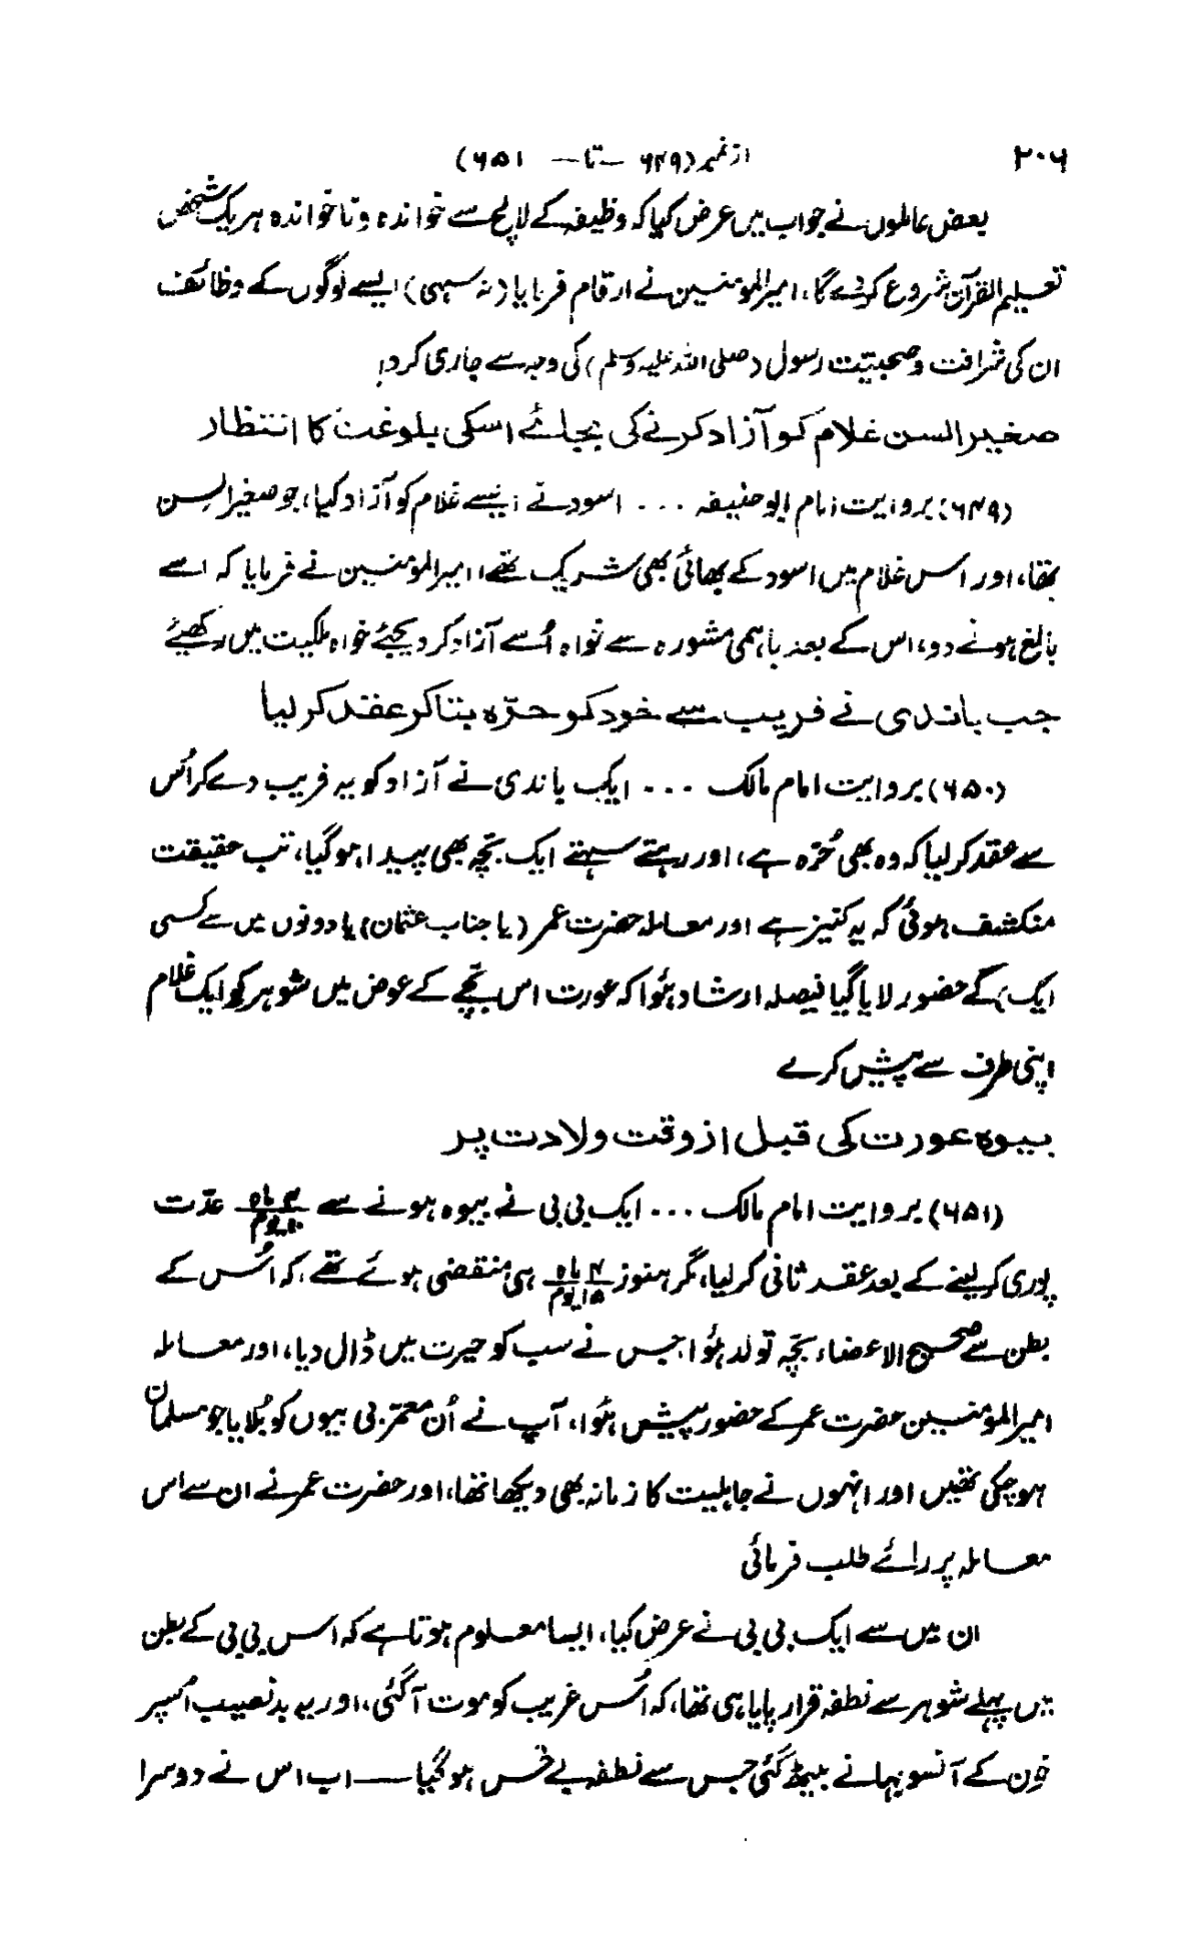 ۲۰۶ از نمبر (۶۴۹ — تا — ۶۵۱)
بعض عاملوں نے جواب میں عرض کیا کہ وظیفہ کے لالچ سے خواندہ و ناخواندہ ہر یک شخص
تعلیم القرآن شروع کر دے گا، امیرالمؤمنین نے ارقام فرمایا (نہ سہی) ایسے لوگوں کے وظائف
ان کی شرافت و صحبیّت رسول (صلی اللہ علیہ وسلم) کی وجہ سے جاری کر دو
صغیر السن غلام کو آزاد کرنے کی بجائے اسکی بلوغت کا انتظار
(۶۴۹) بروایت امام ابوحنیفہ ... اسود نے ایسے غلام کو آزاد کیا، جو صغیر السن
تھا، اور اس غلام میں اسود کے بھائی بھی شریک تھے، امیرالمؤمنین نے فرمایا کہ اسے
بالغ ہونے دو، اس کے بعد باہمی مشورہ سے خواہ اُسے آزاد کر دیجئے خواہ ملکیت میں رکھیئے
جب باندی نے فریب سے خود کو حرّہ بتا کر عقد کر لیا
(۶۵۰) بروایت امام مالک ... ایک باندی نے آزاد کو یہ فریب دے کر اُس
سے عقد کر لیا کہ وہ بھی حُرّہ ہے، اور رہتے سہتے ایک بچّہ بھی پیدا ہو گیا، تب حقیقت
منکشف ہوئی کہ یہ کنیز ہے اور معاملہ حضرت عمر (یا جناب عثمان) یا دونوں میں سے کسی
ایک) کے حضور لایا گیا فیصلہ ارشاد ہُوا کہ عورت اس بچّے کے عوض میں شوہر کو ایک غلام
اپنی طرف سے پیش کرے
بیوہ عورت کی قبل از وقت ولادت پر
(۶۵۱) بروایت امام مالک ... ایک بی بی نے بیوہ ہونے سے ۴ ماہ ۱۰ یوم عدّت
پوری کر لینے کے بعد عقد ثانی کر لیا، مگر ہنوز ۴ ماہ ۱۵ یوم ہی منقضی ہوئے تھے، کہ اُس کے
بطن سے صحیح الاعضاء بچّہ تولد ہُوا جس نے سب کو حیرت میں ڈال دیا، اور معاملہ
امیرالمؤمنین حضرت عمر کے حضور پیش ہُوا، آپ نے اُن معمّر بی بیوں کو بُلایا جو مسلمان
ہو چکی تھیں اور انہوں نے جاہلیت کا زمانہ بھی دیکھا تھا، اور حضرت عمر نے ان سے اس
معاملہ پر رائے طلب فرمائی
ان میں سے ایک بی بی نے عرض کیا، ایسا معلوم ہوتا ہے کہ اس بی بی کے بطن
میں پہلے شوہر سے نطفہ قرار پایا ہی تھا، کہ اُس غریب کو موت آ گئی، اور یہ بدنصیب اُسپر
خون کے آنسو بہانے بیٹھ گئی جس سے نطفہ بے حس ہو گیا — اب اس نے دوسرا